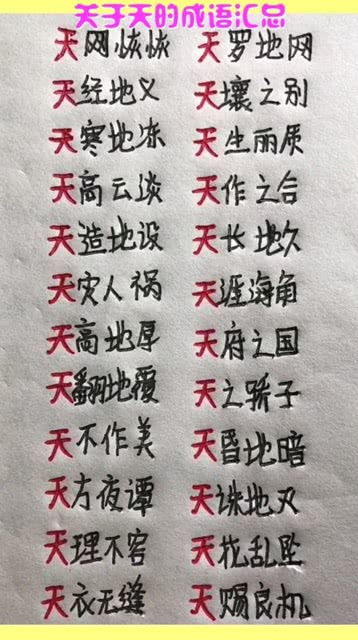 关于天的成语汇总
天网恢恢 天罗地网
天经地义 天壤之别
天寒地冻 天生丽质
天高云谈 天作之合
天造地设 天长地久
天灾人祸 天涯海角
天高地厚 天府之国
天翻地覆 天之骄子
天不作美 天昏地暗
天方夜谭 天诛地灭
天理不容 天花乱坠
天衣无缝 天赐良机